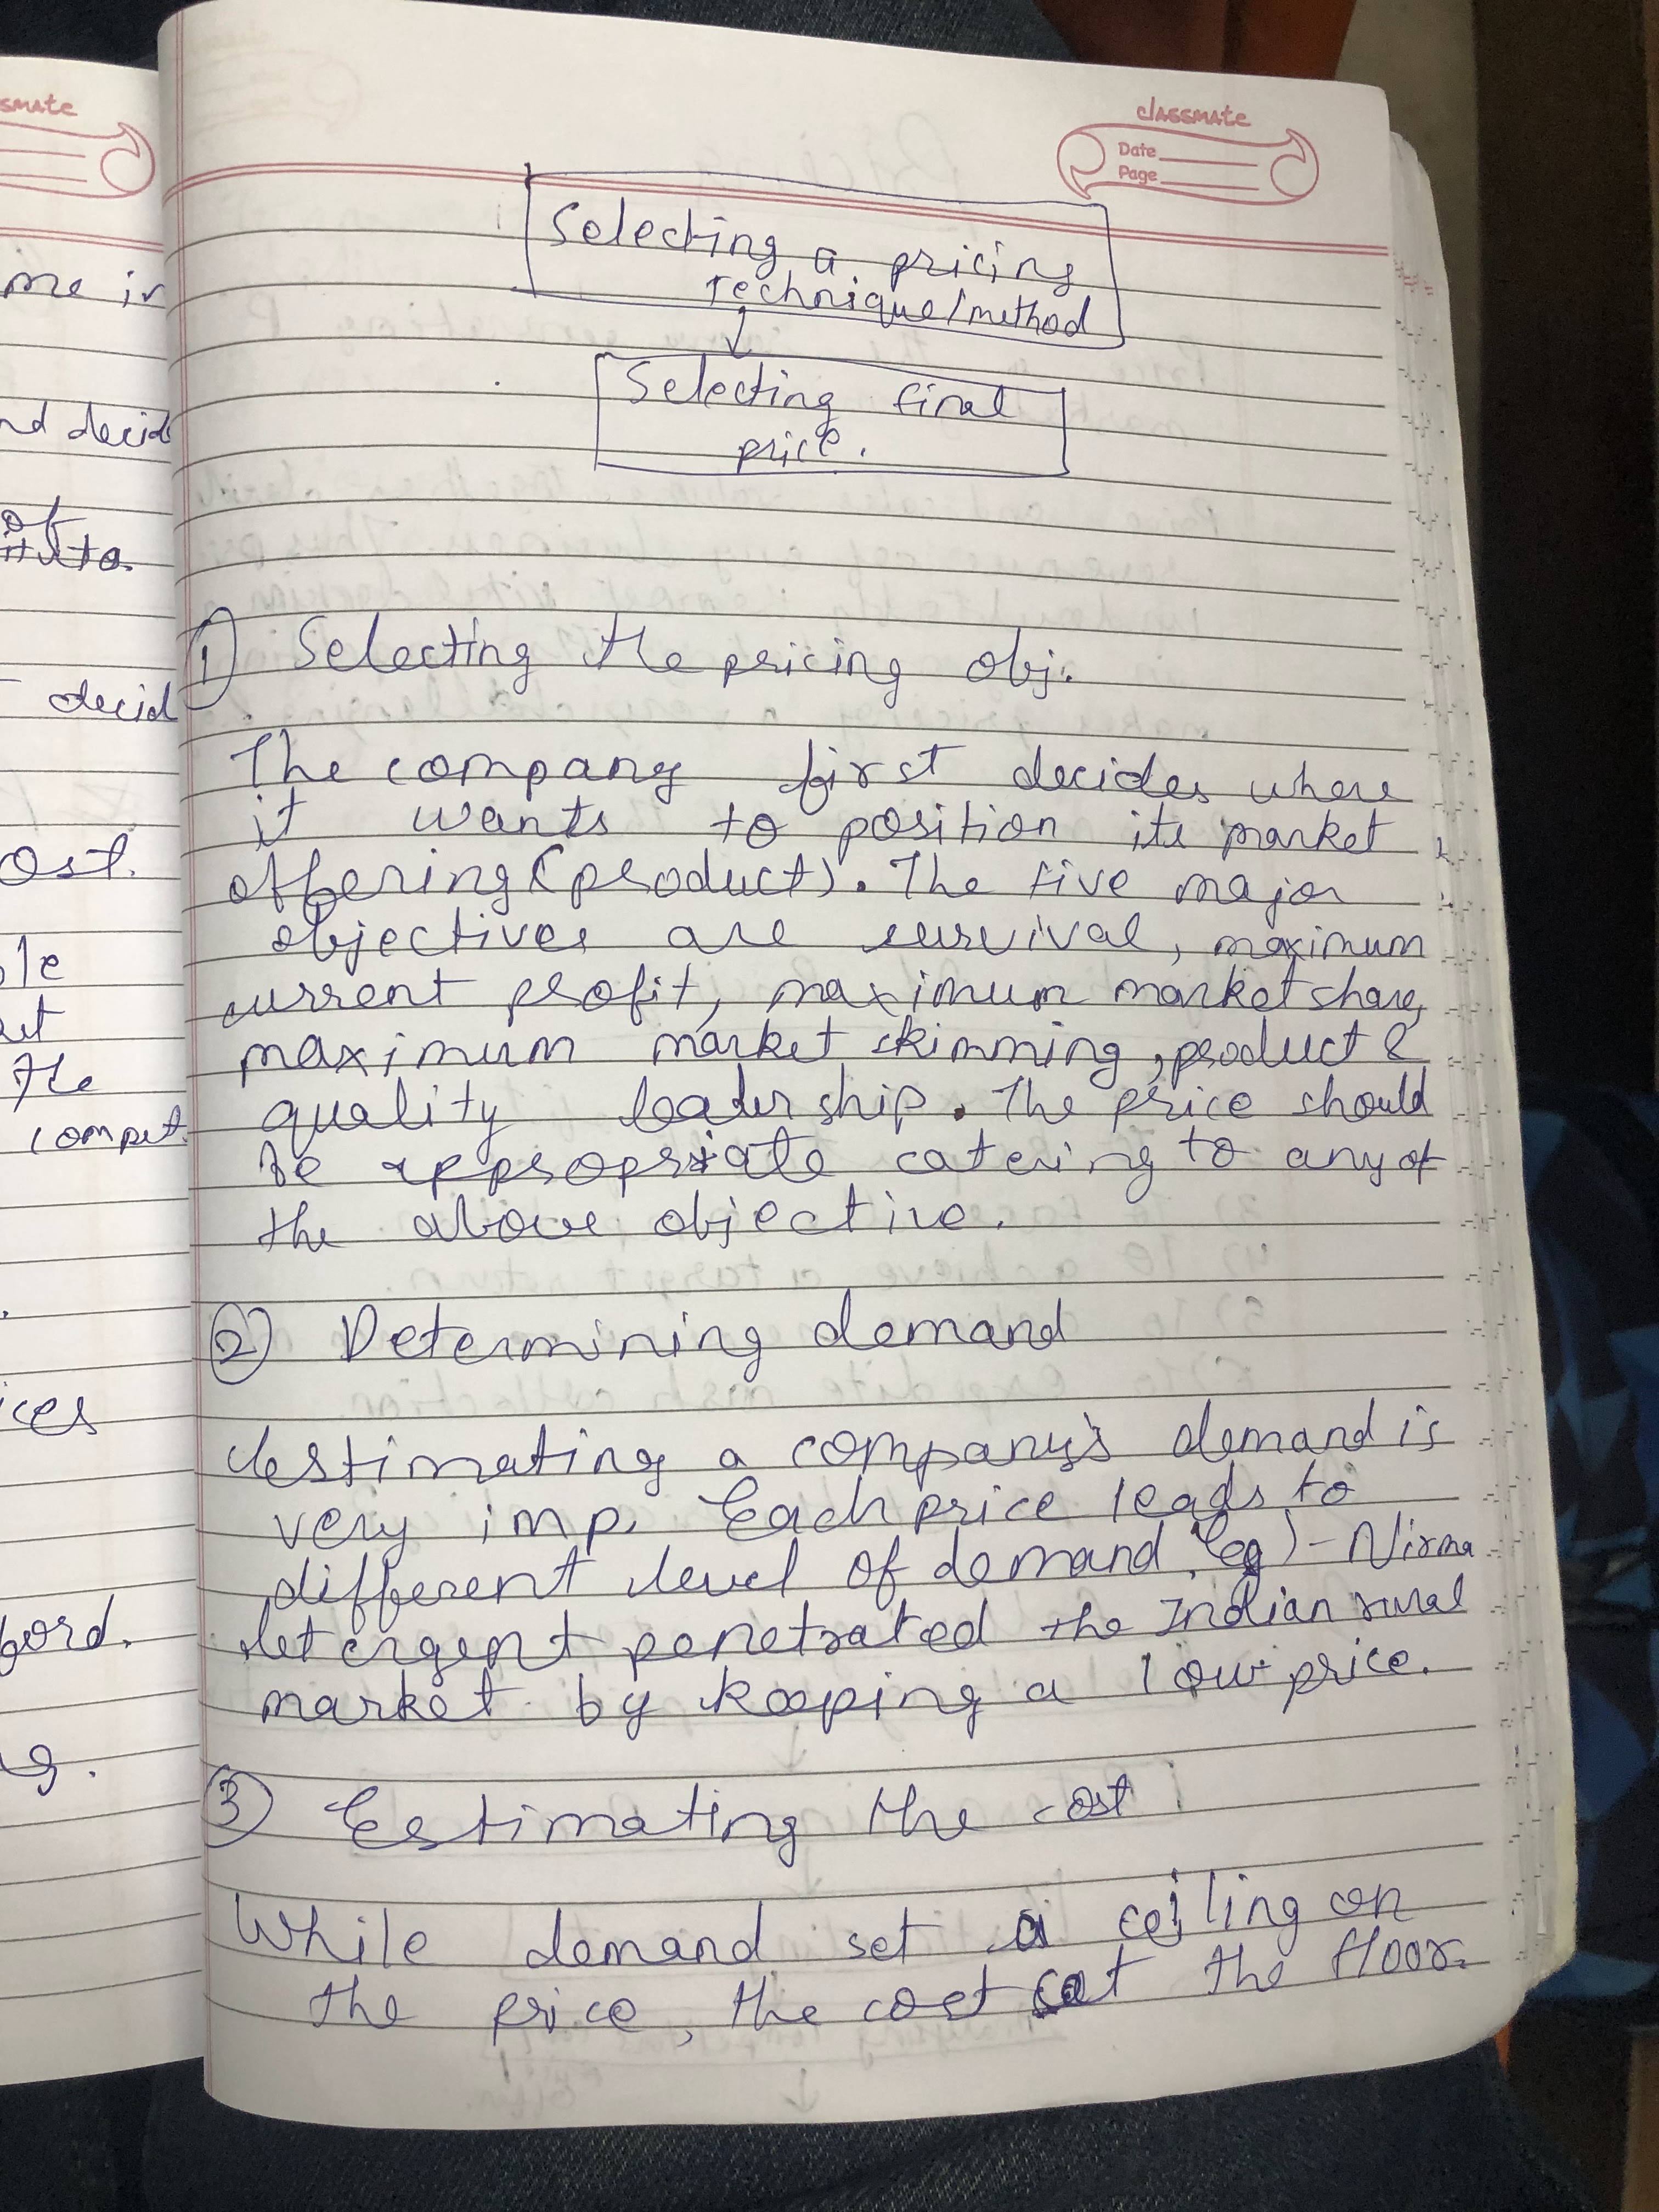 smate
me in
nd decid
of
decid
ost.
ole
The
compet.
ices
ford.
classmate
Date
Page
Selecting a pricing
Technique/method
Selecting final
price.
1 Selecting the pricing obj.
The company first decides where
it wants to position its market
offering (product). The five major
objectives are survival, maximum
current profit, maximum market share,
maximum market skimming, product &
quality leadership. The price should
be appropriate catering to any of
the above objective.
2 Determining demand
Estimating a company's demand is
very imp. Each price leads to
different level of demand. Eg) - Nirma
detergent penetrated the Indian rural
market by keeping a low price.
3 Estimating the cost
While demand set a ceiling on
the price, the cost set the floor.